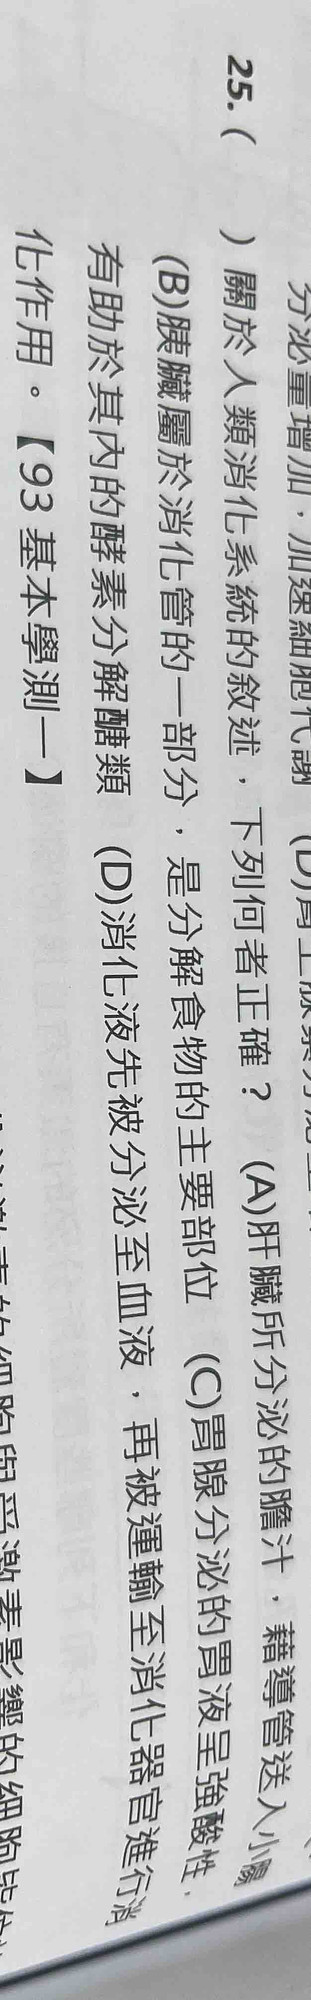 分泌量增加，加速細胞代謝 (D)腎上腺素分泌
25. (　　) 關於人類消化系統的敘述，下列何者正確？ (A)肝臟所分泌的膽汁，藉導管送入小腸
(B)胰臟屬於消化管的一部分，是分解食物的主要部位 (C)胃腺分泌的胃液呈強酸性，
有助於其內的酵素分解醣類 (D)消化液先被分泌至血液，再被運輸至消化器官進行消
化作用。【93 基本學測一】
的細胞與受激素影響的細胞皆